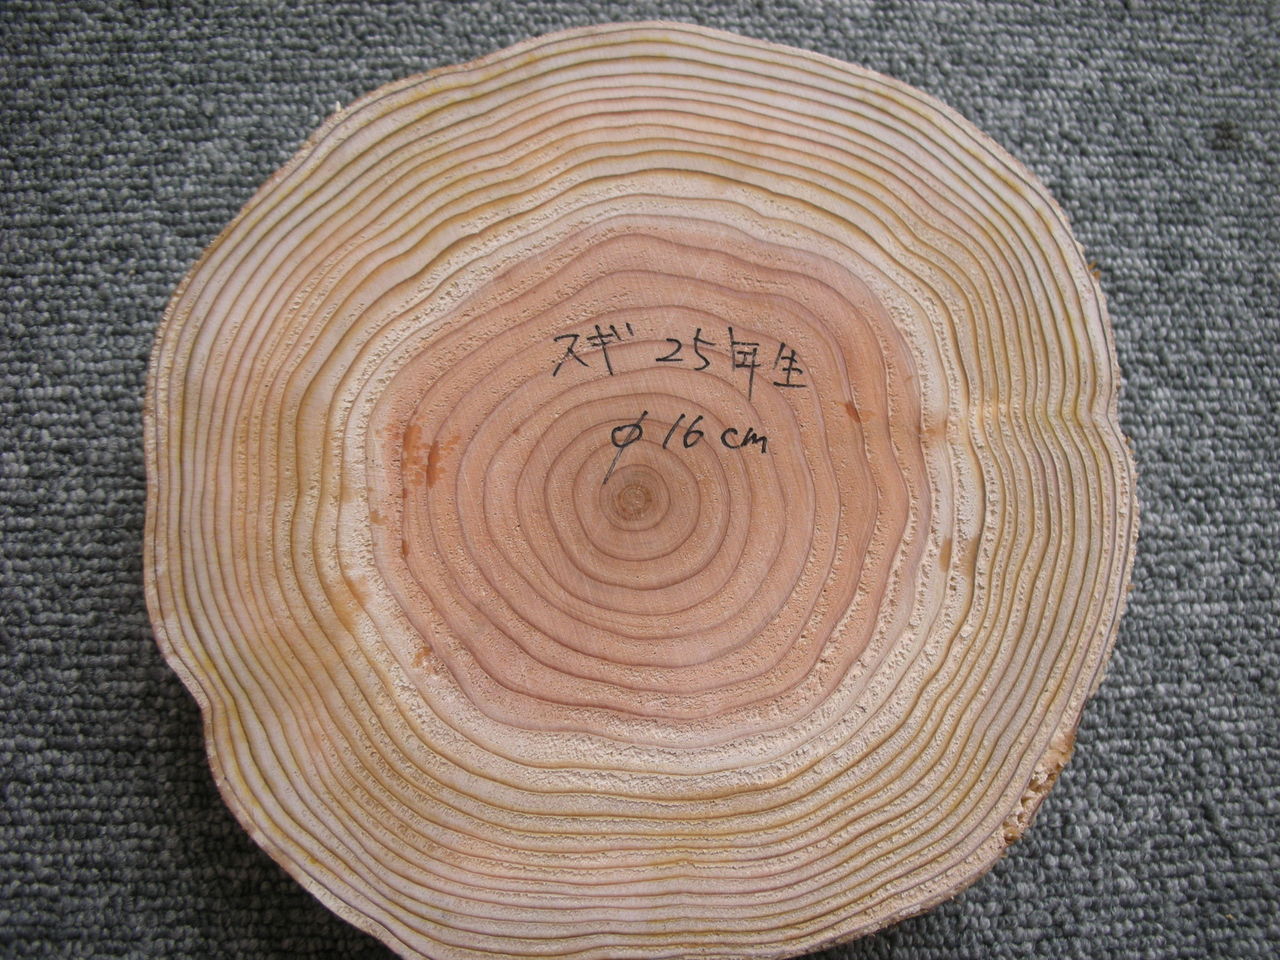 スギ 25年生
φ16cm